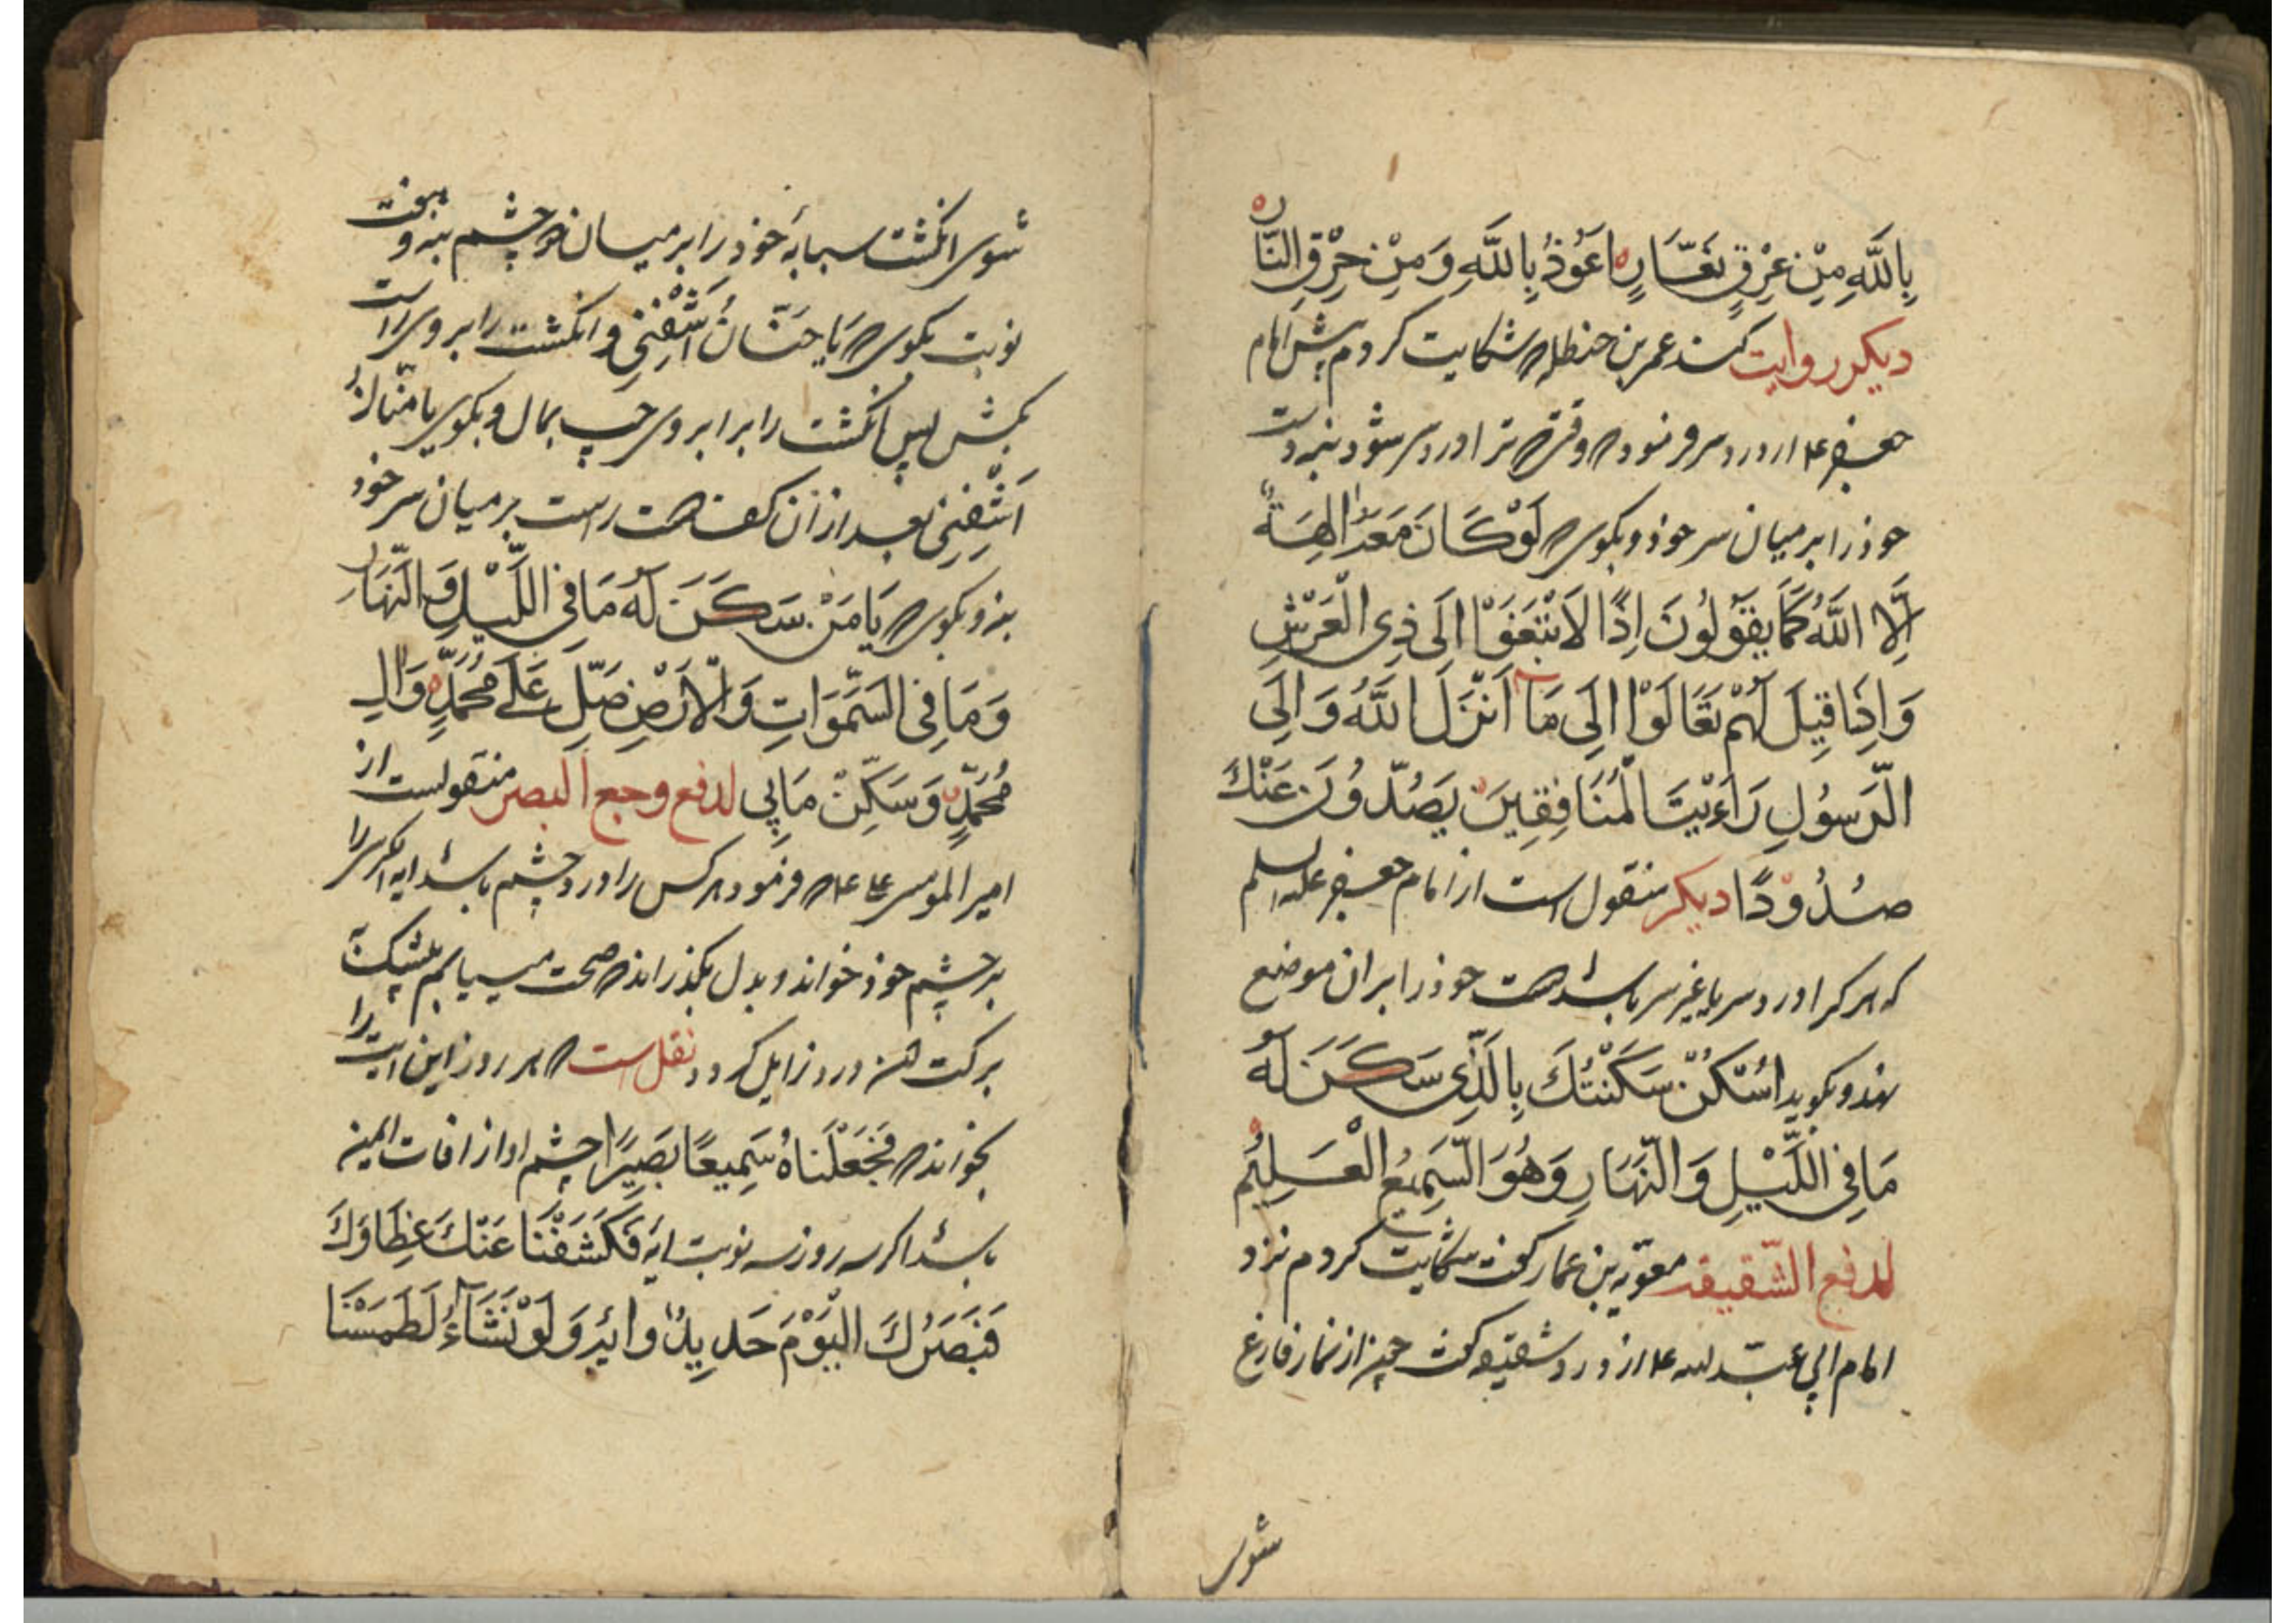 بِاللَّهِ مِنْ عِرْقٍ نَعَّارٍ اَعُوذُ بِاللَّهِ وَ مِنْ حَرِّقِ النَّارِ
دیکر روایت کند عمر بن حنظله که شکایت کردم پیش امام
جعفر ع از درد سر فرمود که وقتی که ترا درد سر شود بنه دست
خود را بر میان سر خود و بکوی که لَوْ كَانَ مَعَهُ الِهَةٌ
اِلَّا اللَّهُ كَمَا يَقُولُونَ اِذًا لَابْتَغَوْا اِلَى ذِى الْعَرْشِ
وَ اِذَا قِيلَ لَهُمْ تَعَالَوْا اِلَى مَا اَنْزَلَ اللَّهُ وَ اِلَى
الرَّسُولِ رَاَيْتَ الْمُنَافِقِينَ يَصُدُّونَ عَنْكَ
صُدُودًا دیکر منقول است از امام جعفر علیه السلم
که هر کرا درد سر یا غیر سر باشد دست خود را بر ان موضع
نهد و بکوید اُسْكُنْ سَكَّنْتُكَ بِالَّذِى سَكَنَ لَهُ
مَا فِى اللَّيْلِ وَ النَّهَارِ وَ هُوَ السَّمِيعُ الْعَلِيمُ
لدفع الشقیقه معویه بن عمار کفت شکایت کردم نزد
امام ابی عبد الله ع از درد شقیقه کفت چون از نماز فارغ
شوی
شوی انکشت سبابهٔ خود را بر میان دو چشم بنه و هفت
نوبت بکوی که يَا حَنَّانُ اشْفِنِى و انکشت را بر ابروی راست
بکش پس انکشت را بر ابروی چپ بمال و بکوی يا مَنَّانُ
اَشْفِنِى بعد از ان کف دست راست بر میان سر خود
بنه و بکوی که يَا مَنْ سَكَنَ لَهُ مَا فِى اللَّيْلِ وَ النَّهَارِ
وَ مَا فِى السَّمَوَاتِ وَ الْاَرْضِ صَلِّ عَلَى مُحَمَّدٍ وَ الِ
مُحَمَّدٍ وَ سَكِّنْ مَا بِى لدفع وجع البصر منقولست از
امیر المومنین که فرمود هر کس را درد چشم باشد ایه الکرسی را
بر چشم خود خواند و بدل بکذراند که صحت میابم بیشک
برکت درد زایل کردد نقل است که هر روز این ایت را
بخواند که فَجَعَلْنَاهُ سَمِيعًا بَصِيرًا چشم او از افات ایمن
باشد اکر سه روز سه نوبت ایه فَكَشَفْنَا عَنْكَ غِطَاوَكَ
فَبَصَرُكَ الْيَوْمَ حَدِيدٌ و ایه وَ لَوْ نَشَآءُ لَطَمَسْنَا